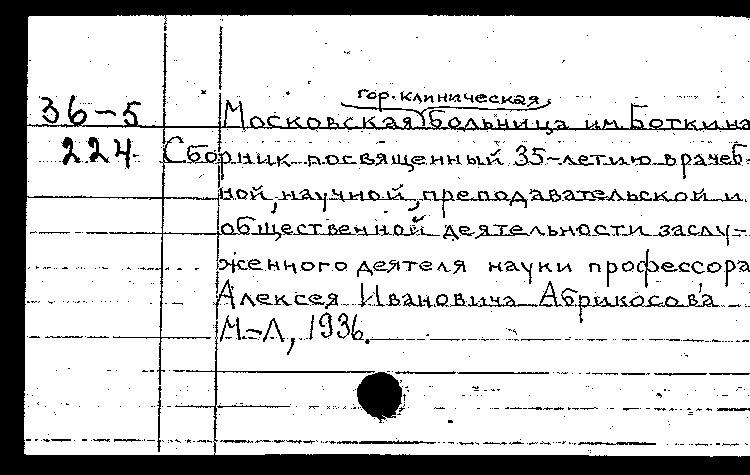 гор. клиническая
36-5 Московская больница им. Боткина
224. Сборник посвященный 35-летию врачеб-
ной, научной, преподавательской и
общественной деятельности заслу-
женного деятеля науки профессора
Алексея Ивановича Абрикосова
М-Л, 1936.